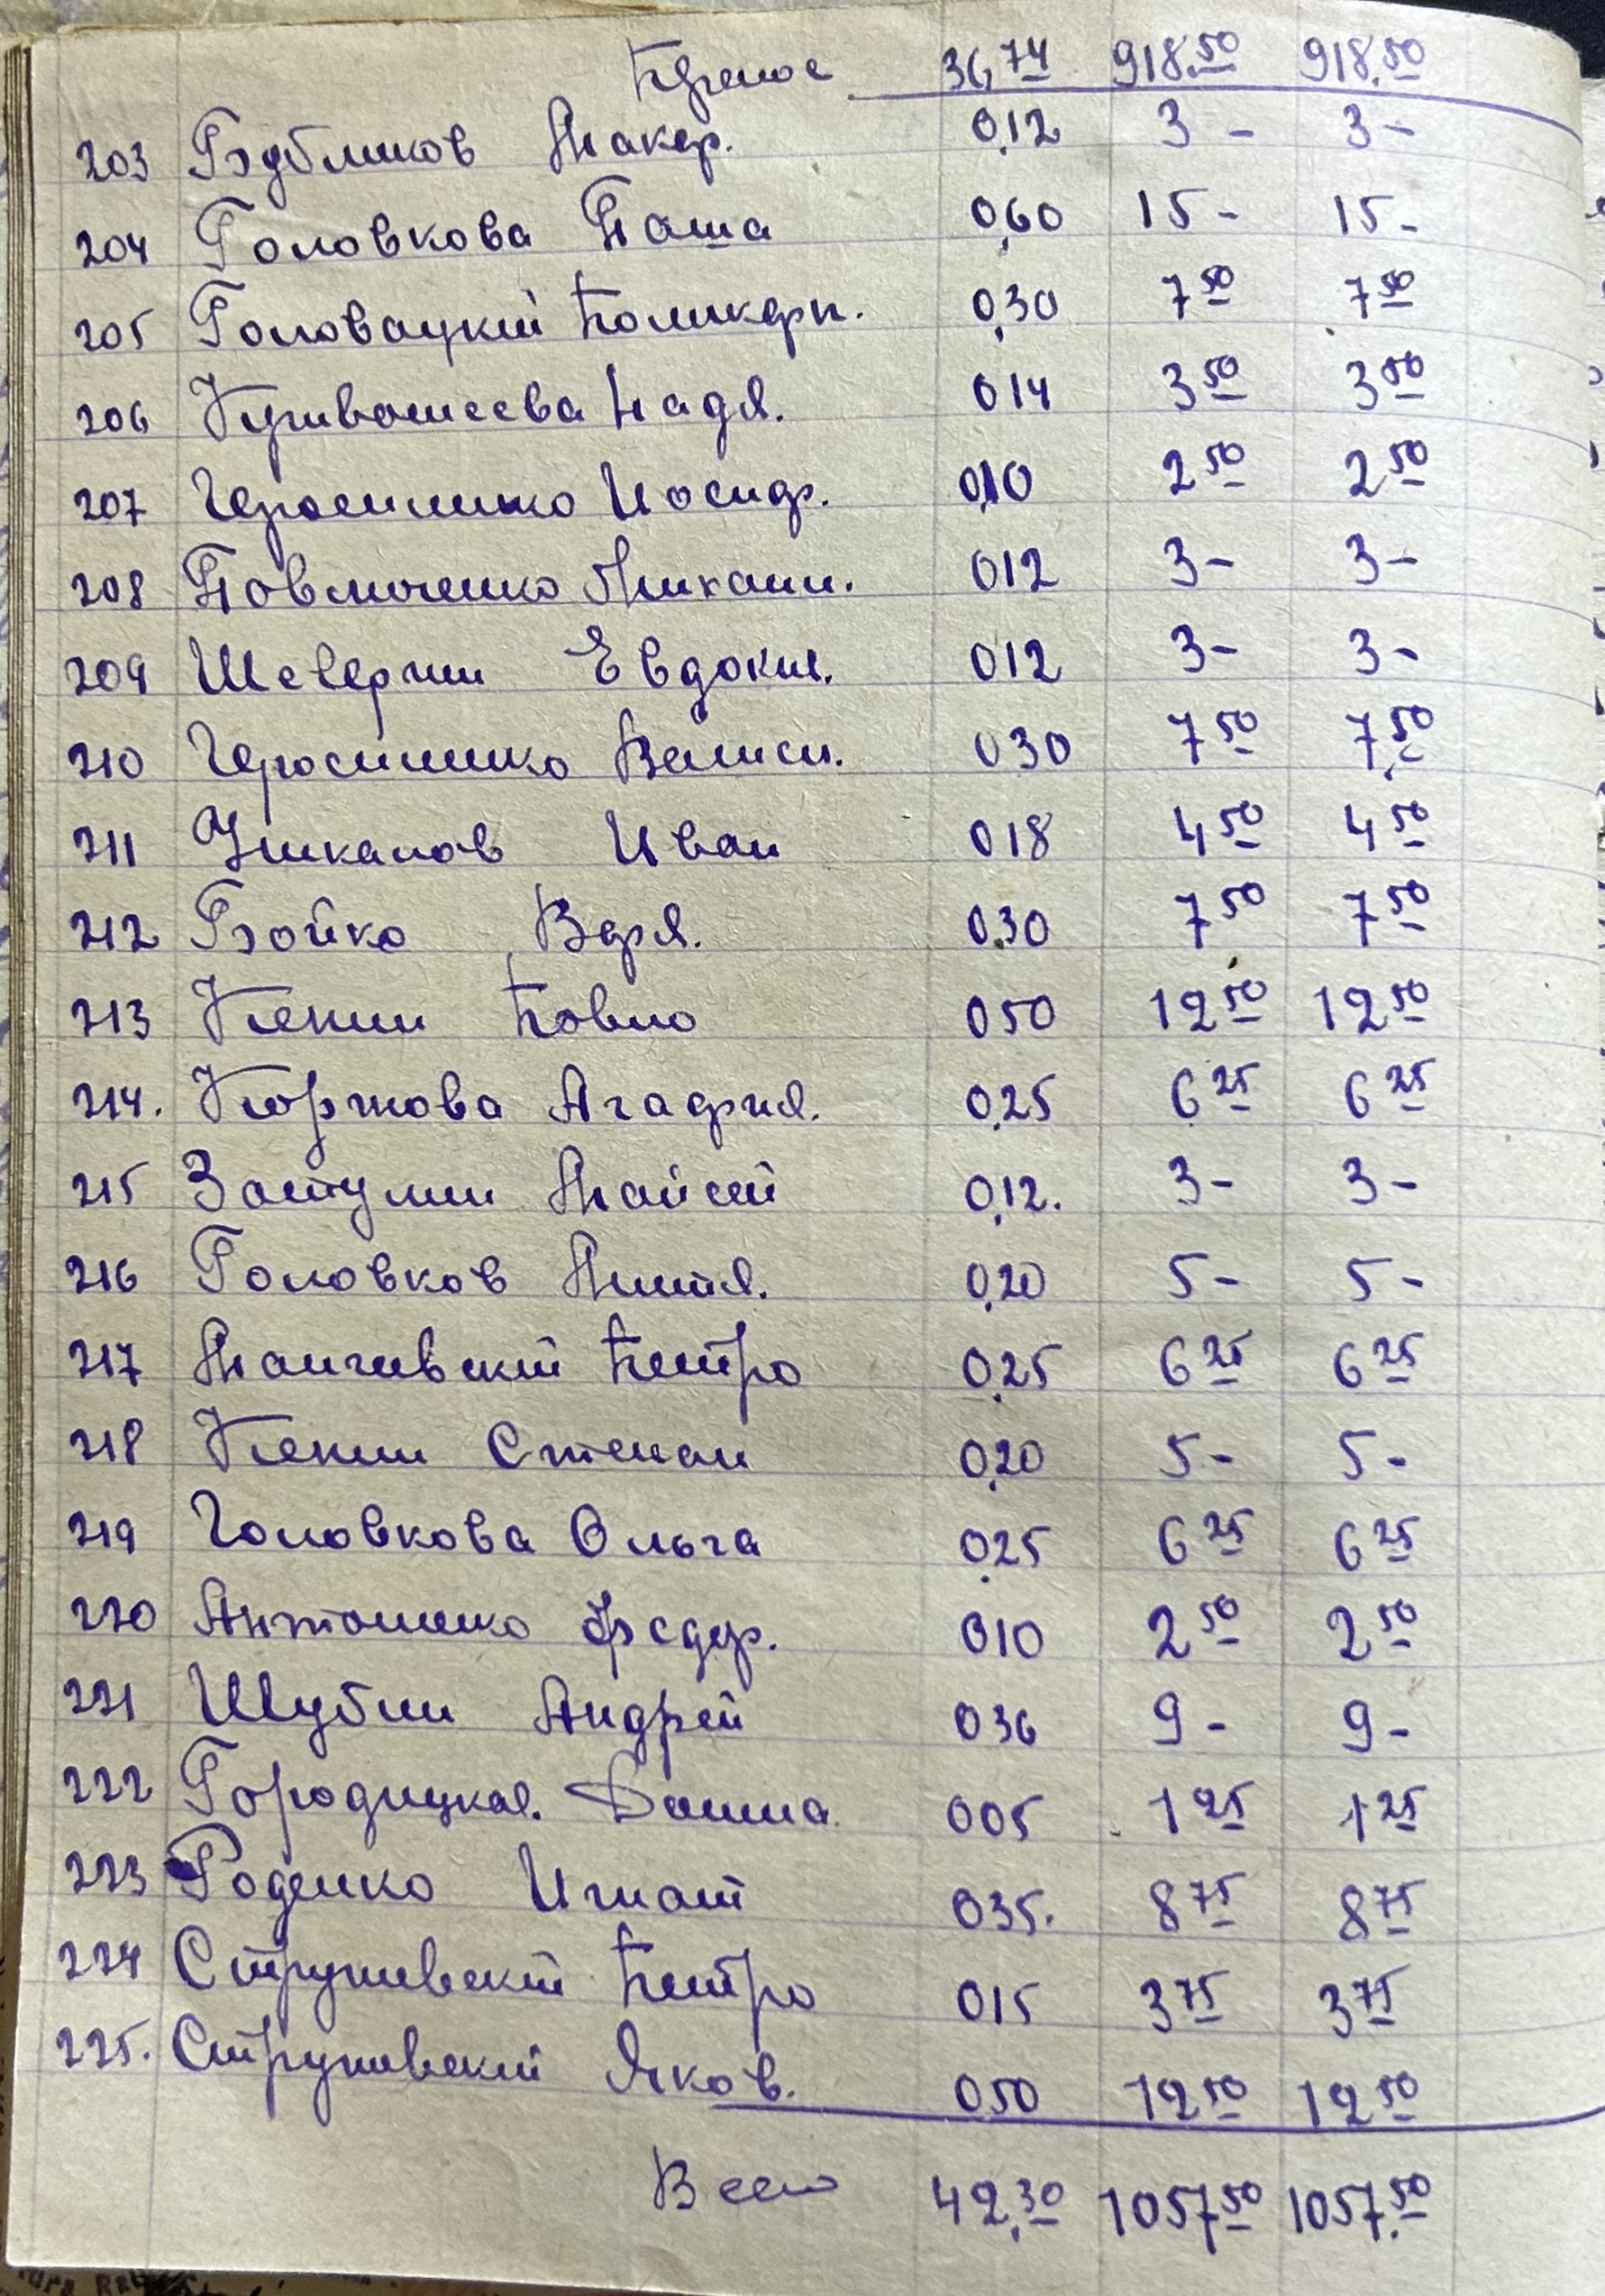 36,74 918.50 918.50
203 Бубликов Макар. 0,12 3 - 3 -
204 Головкова Паша 0,60 15 - 15 -
205 Головацкий Поликарп. 0,30 7 50 7 50
206 Кривошеева Надя. 014 3 50 3 50
207 Герасименко Иосиф. 0,10 2 50 2 50
208 Павлюченко Михаил. 012 3 - 3 -
209 Шеверин Евдоким. 012 3 - 3 -
210 Герасименко Васил. 030 7 50 7,50
211 Учкалов Иван 018 4 50 4 50
212 Бойко Варя. 0,30 7 50 7 50
213 Кекин Павло 050 12 50 12 50
214. Коржова Агафия. 0,25 6 25 6 25
215 Затулин Мойсей 0,12. 3 - 3 -
216 Головков Митя. 0,20 5 - 5 -
217 Петро 0,25 6 25 6 25
218 Кекин Степан 0,20 5 - 5 -
219 Головкова Ольга 0,25 6 25 6 25
220 Антоненко Федор. 010 2 50 2 50
221 Шубин Андрей 036 9 - 9 -
222 Городицкая. 005 1 25 1 25
223 Роденко Игнат 035. 8 75 8 75
224 Струневский Петро 015 3 75 3 75
225. Струневский Яков. 050 12 50 12 50
Всего 42,30 1057,50 1057.50